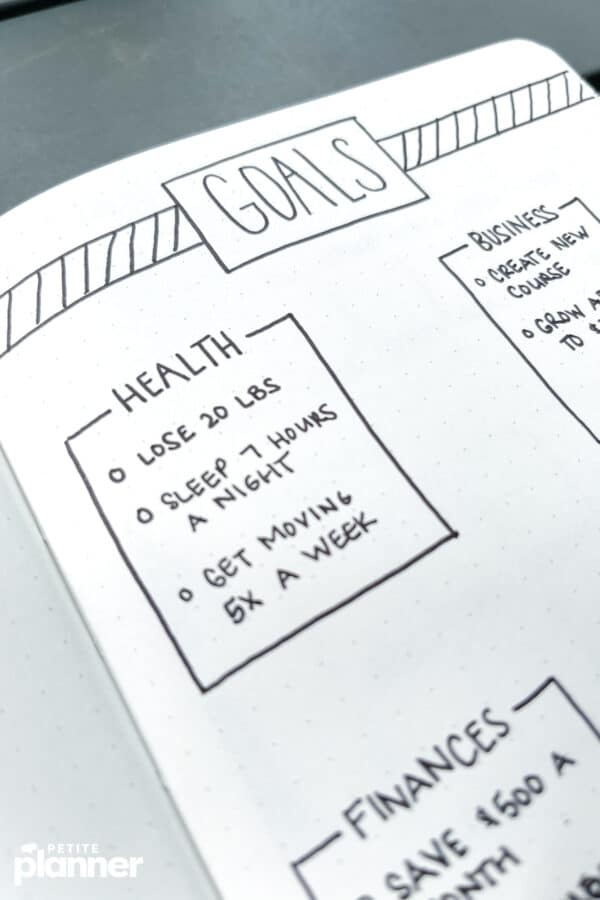 GOALS
HEALTH
LOSE 20 LBS
SLEEP 7 HOURS
A NIGHT
GET MOVING
5X A WEEK
BUSINESS
CREATE NEW
COURSE
GROW
TO
FINANCES
SAVE $500 A
PETITE
planner